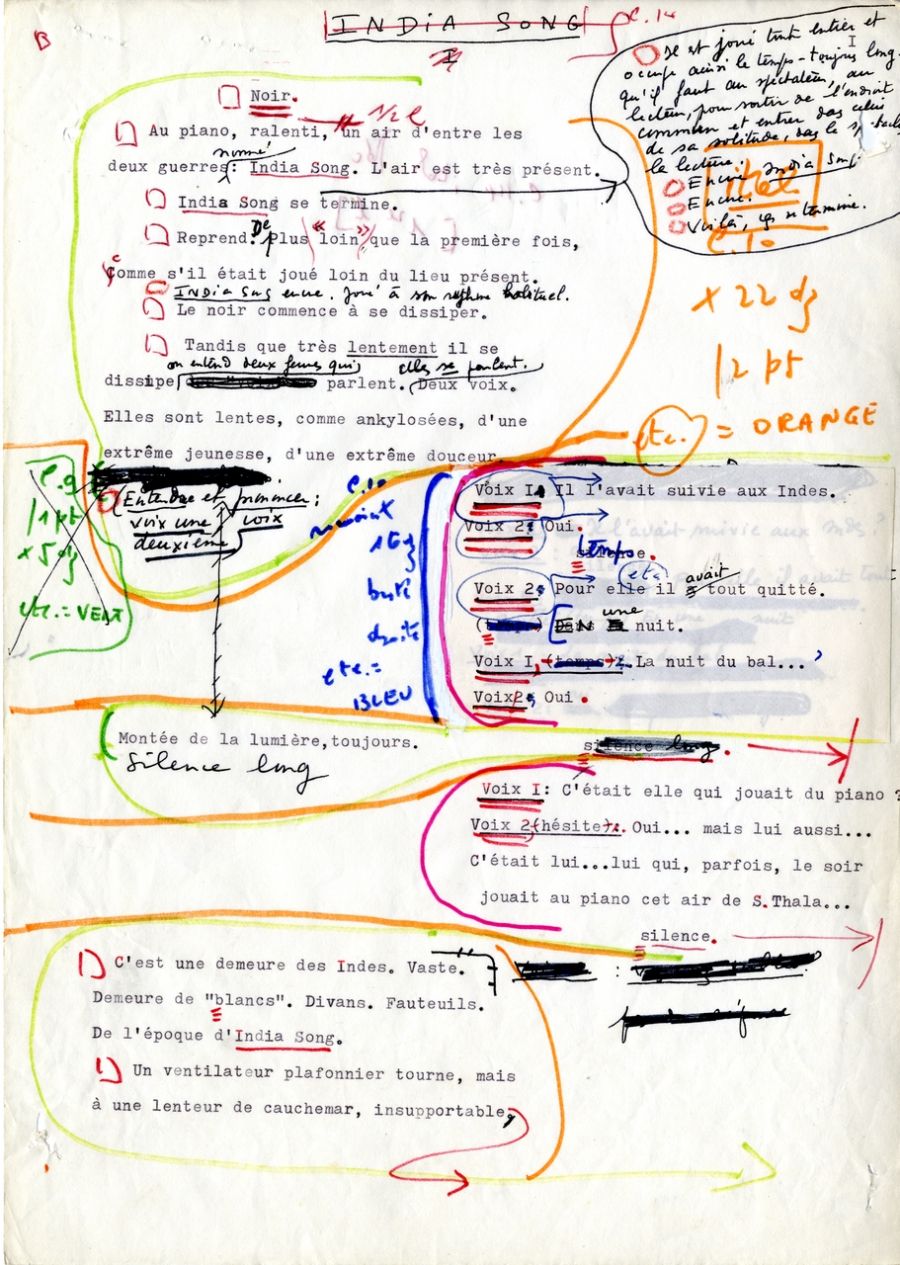 B
INDIA SONG
C.14
I
I
Il est joué tout entier et
occupe ainsi le temps - toujours long -
qu'il faut au spectateur, au
lecteur, pour sortir de l'endroit
commun et entrer dans celui
de sa solitude, dans le spectacle
la lecture.
Encore India Song
Encore.
Voilà, se termine.
Noir.
1/2 l
Au piano, ralenti, un air d'entre les
nommé
deux guerres: India Song. L'air est très présent.
India Song se termine.
Reprend. De Plus "loin" que la première fois,
Comme s'il était joué loin du lieu présent.
INDIA Song encore. Joué à son rythme habituel.
Le noir commence à se dissiper.
C.10
x 22 dz
12 pt
etc. = ORANGE
Tandis que très lentement il se
on entend deux femmes qui elles se parlent.
dissipe parlent. Deux voix.
Elles sont lentes, comme ankylosées, d'une
extrême jeunesse, d'une extrême douceur.
C.9
11 pt
x 5 dz
etc. = VERT
Entendre et prononcer :
voix une voix
deuxième
C.10
romain
etc. =
BLEU
Voix I: Il l'avait suivie aux Indes.
Voix 2: Oui.
temps
silence.
etc. avait
Voix 2: Pour elle il tout quitté.
EN une
(temps) Dans nuit.
Voix I,(temps): La nuit du bal...
Voix2: Oui.
Montée de la lumière,toujours.
Silence long
silence long.
Voix I: C'était elle qui jouait du piano ?
Voix 2(hésite): Oui... mais lui aussi...
C'était lui...lui qui, parfois, le soir
jouait au piano cet air de S.Thala...
silence.
C'est une demeure des Indes. Vaste.
Demeure de "blancs". Divans. Fauteuils.
De l'époque d'India Song.
Un ventilateur plafonnier tourne, mais
à une lenteur de cauchemar, insupportable,